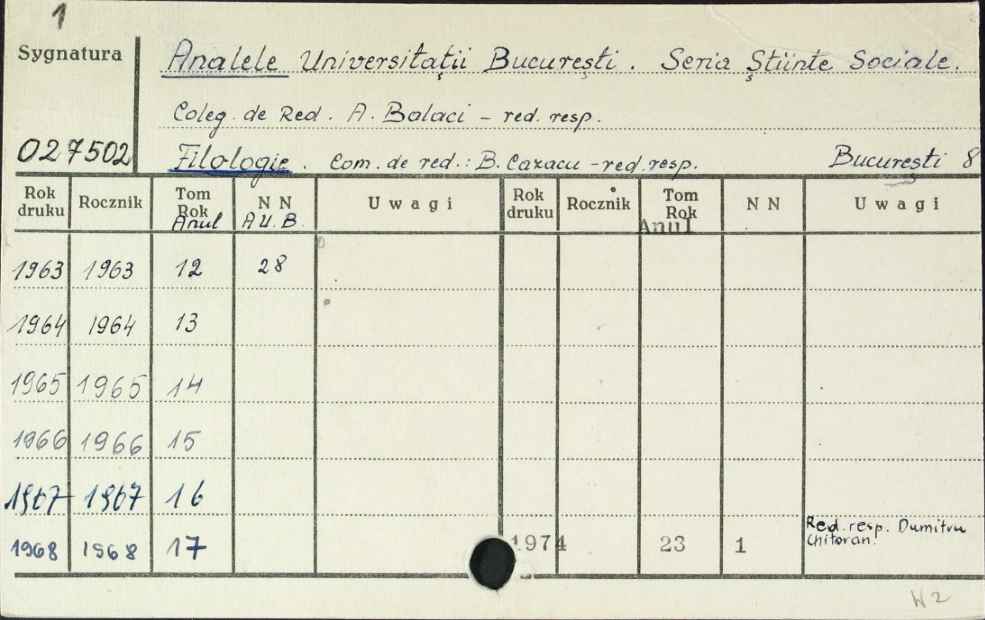 1
Sygnatura
Analele Universitaţii Bucureşti. Seria Ştiinte Sociale.
Coleg. de Red. A. Balaci - red. resp.
027502
Filologie. Com. de red.: B. Cazacu - red. resp. Bucureşti 8
Rok druku Rocznik Tom Rok Anul NN A.U.B. Uwagi Rok druku Rocznik Tom Rok Anul NN Uwagi
1963 1963 12 28
1964 1964 13
1965 1965 14
1966 1966 15
1967 1967 16
1968 1968 17 1974 23 1 Red. resp. Dumitru Chitoran.
W2